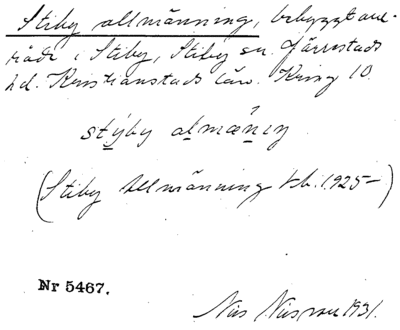 Stiby allmänning, bebyggt om-
råde i Stiby, Stiby sn. Järrestads
hd. Kristianstads län. Kring 10.
stýby almæniŋ
(Stiby Allmänning tsb. 1925–)
Nr 5467.
Nils Nilsson 1931.